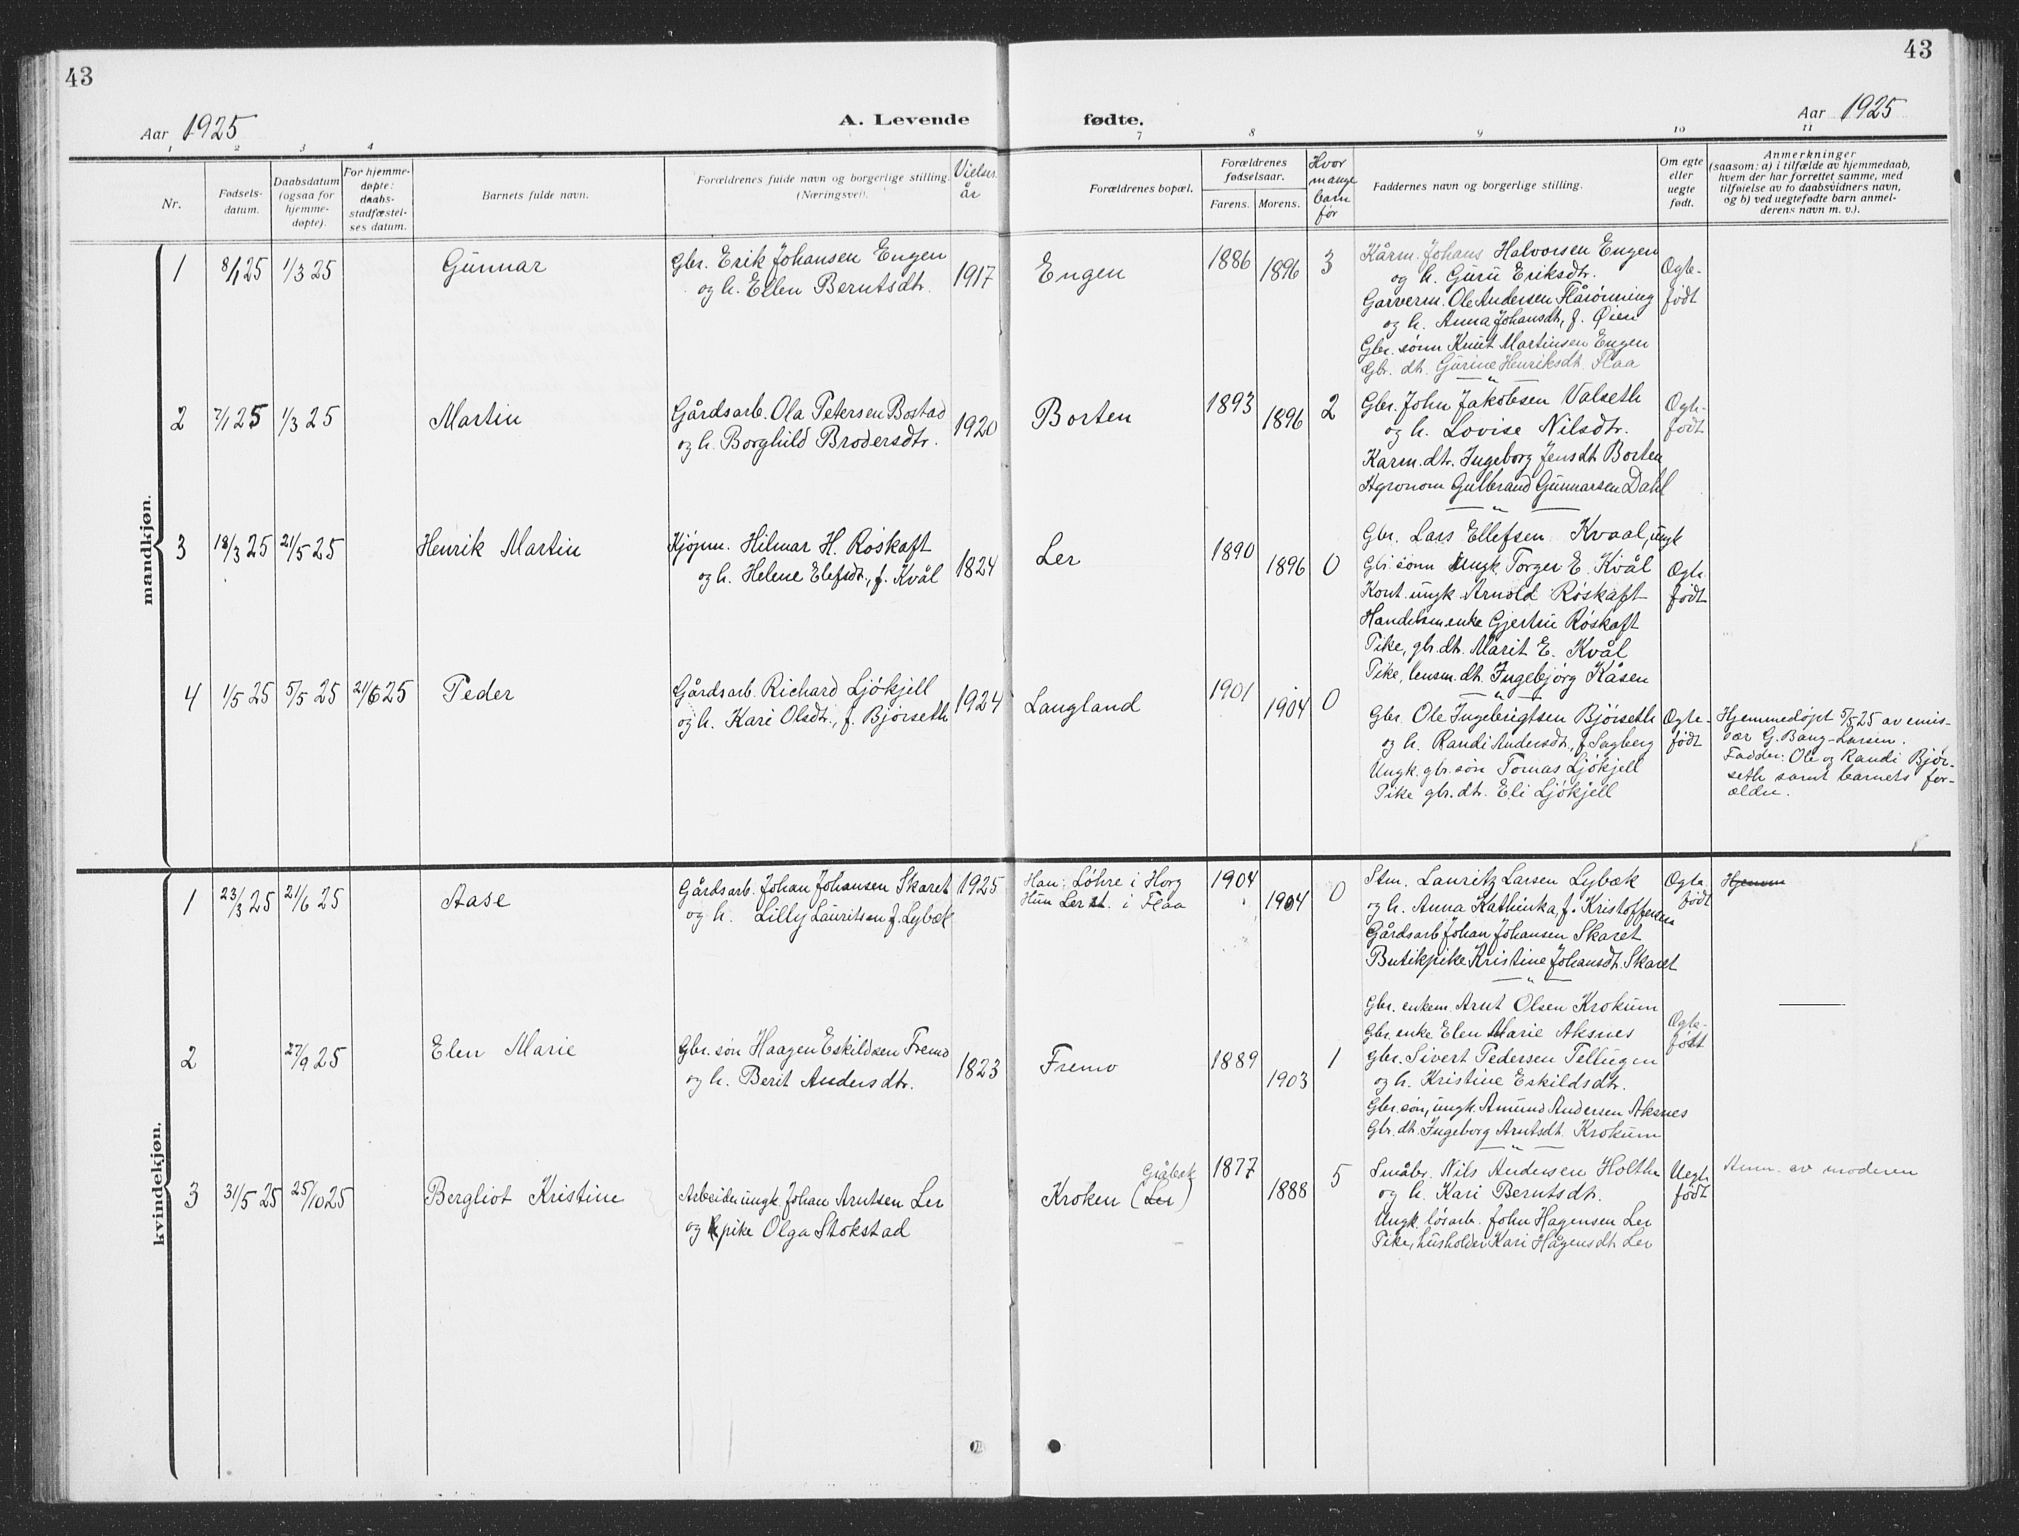 43
43
Aar 1925
A. Levende fødte.
Aar 1925
1 2 3 4 7 8 9 10 11
Nr.
Fødsels-
datum.
Daabsdatum
(ogsaa for
hjemme-
døpte).
For hjemme-
døpte:
daabs-
stadfæstel-
ses datum.
Barnets fulde navn.
Forældrenes fulde navn og borgerlige stilling.
(Næringsvei).
Vielses
år
Forældrenes bopæl.
Forældrenes
fødselsaar.
Farens. Morens.
Hvor
mange
barn
før
Faddernes navn og borgerlige stilling.
Om egte
eller
uegte
født.
Anmerkninger
(saasom: a) i tilfælde av hjemmedaab,
hvem der har forrettet samme, med
tilføielse av to daabsvidners navn,
og b) ved uegtefødte barn anmel-
derens navn m. v.).
mandkjøn.
1 8/1 25 1/3 25 Gunnar
Gbr. Erik Johansen Engen
og h. Ellen Berntsdtr.
1917 Engen 1886 1896 3
Kårm. Johans Halvorsen Engen
og h. Guru Eriksdtr.
Garverm. Ole Andersen Flårønning
og h. Anna Johansdt, f. Øien
Gbr. sønn Knut Martinsen Engen
Gbr. dt. Gurine Henriksdt. Flaa
Ogte-
født
2 7/1 25 1/3 25 Martin
Gårdsarb. Ola Petersen Bostad
og h. Borghild Brodersdtr.
1920 Borten 1893 1896 2
Gbr. John Jakobsen Valseth
og h. Lovise Nilsdtr.
Karm. dtr. Ingeborg Jensdt. Borten
Agronom Gulbrand Gunnarsen Dahl
Ogte-
født
3 18/3 25 21/5 25 Henrik Martin
Kjøpm. Hilmar H. Røskaft
og h. Helene Elefsdt., f. Kvål
1824 Ler 1890 1896 0
Gbr. Lars Ellefsen Kvaal, ungk
Gbr. sønn ungk. Torger E. Kvål
Kont. ungk. Arnold Røskaft
Handelsmenke Gjertru Røskaft
Pike, gbr. dt. Marit E. Kvål
Pike, lensm. dt. Ingebjørg Kåsen
Ogte-
født
4 1/5 25 5/5 25 21/6 25 Peder
Gårdsarb. Richard Ljøkjell
og h. Kari Olsdtr., f. Bjørseth
1924 Langland 1901 1904 0
Gbr. Ole Ingebrigtsen Bjørseth
og h. Randi Andersdt., f. Sagberg
Ungk. gbr. søn Tomas Ljøkjell
Pike gbr. dtr. Eli Ljøkjell
Ogte-
født
Hjemmedøpt 5/5 25 av emis-
sær G. Bang-Larsen.
Fadder: Ole og Randi Bjør-
seth samt barnets for-
ældre.
kvindekjøn.
1 23/3 25 21/6 25 Aase
Gårdsarb. Johan Johansen Skaret
og h. Lilly Lauritsen f. Lybæk
1925
Han: Løhre i Horg
Hun Ler st. i Flaa
1904 1904 0
Stm. Lauritz Larsen Lybæk
og h. Anna Kathinka, f. Kristoffersen
Gårdsarb. Johan Johansen Skaret
Butikpike Kristine Johansdt. Skaret
Ogte
født
Hjemm
2 27/9 25 Elen Marie
Gbr. søn Haagen Eskildsen Fremo
og h. Berit Andersdtr.
1823 Fremo 1889 1903 1
Gbr. enkem. Arnt Olsen Krokum
Gbr. enke Elen Marie Aksnes
Gbr. Sivert Pedersen Tellugen
og h. Kristine Eskildsdtr.
Gbr. søn, ungk. Amund Andersen Aksnes
Gbr. dt. Ingeborg Arntsdt. Krokum
Ogte-
født
3 31/5 25 25/10 25 Bergliot Kristine
Arbeider ungk. Johan Arntsen Ler
og pike Olga Stokstad
Gråbæk
Kroken (Ler)
1877 1888 5
Småbr. Nils Andersen Holthe
og h. Kari Berntsdtr.
Ungk. løsarb. John Hagensen Ler
Pike, husholder Kari Hågensdt. Ler
Uegte
født
Anm. av moderen